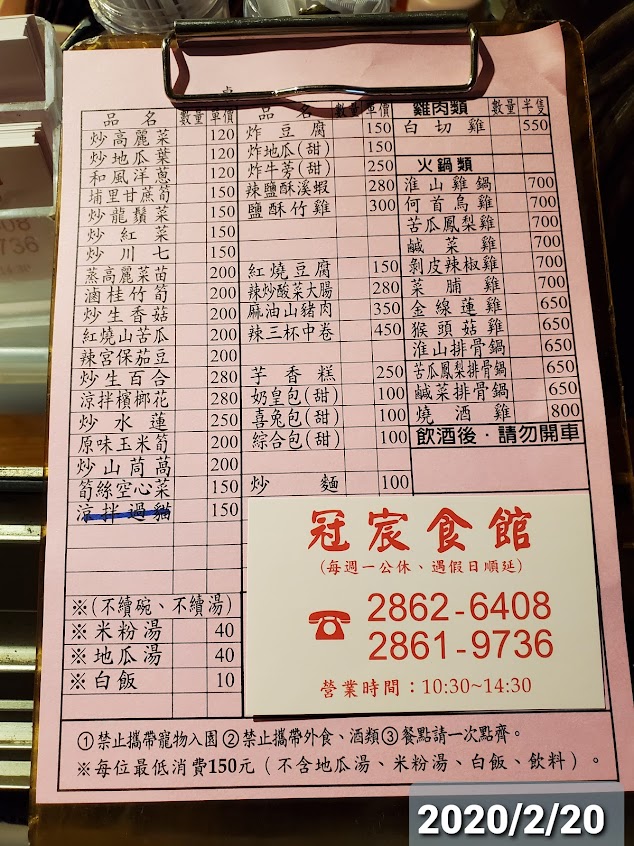 桌
品名 數量 單價
炒高麗菜 120
炒地瓜葉 120
和風洋蔥 120
埔里甘蔗荀 150
炒龍鬚菜 150
炒紅菜 150
炒川七 150
蒸高麗菜苗 200
滷桂竹筍 200
炒生香菇 200
紅燒山苦瓜 200
辣宮保茄豆 200
炒生百合 280
涼拌檳榔花 280
炒水蓮 250
原味玉米筍 200
炒山茼萵 200
筍絲空心菜 150
涼拌過貓 150
※(不續碗、不續湯)
※米粉湯 40
※地瓜湯 40
※白飯 10
品名 數量 單價
炸豆腐 150
炸地瓜(甜) 150
炸牛蒡(甜) 250
辣鹽酥溪蝦 280
鹽酥竹雞 300
紅燒豆腐 150
辣炒酸菜大腸 280
麻油山豬肉 350
辣三杯中卷 450
芋香糕 250
奶皇包(甜) 100
喜兔包(甜) 100
綜合包(甜) 100
炒麵 100
雞肉類 數量 半隻
白切雞 550
火鍋類
淮山雞鍋 700
何首烏雞 700
苦瓜鳳梨雞 700
鹹菜雞 700
剝皮辣椒雞 700
菜脯雞 700
金線蓮雞 650
猴頭菇雞 650
淮山排骨鍋 650
苦瓜鳳梨排骨鍋 650
鹹菜排骨鍋 650
燒酒雞 800
飲酒後·請勿開車
冠宸食館
(每週一公休、遇假日順延)
☎ 2862-6408
2861-9736
營業時間：10:30~14:30
①禁止攜帶寵物入園②禁止攜帶外食、酒類③餐點請一次點齊。
※每位最低消費150元（不含地瓜湯、米粉湯、白飯、飲料）。
2020/2/20